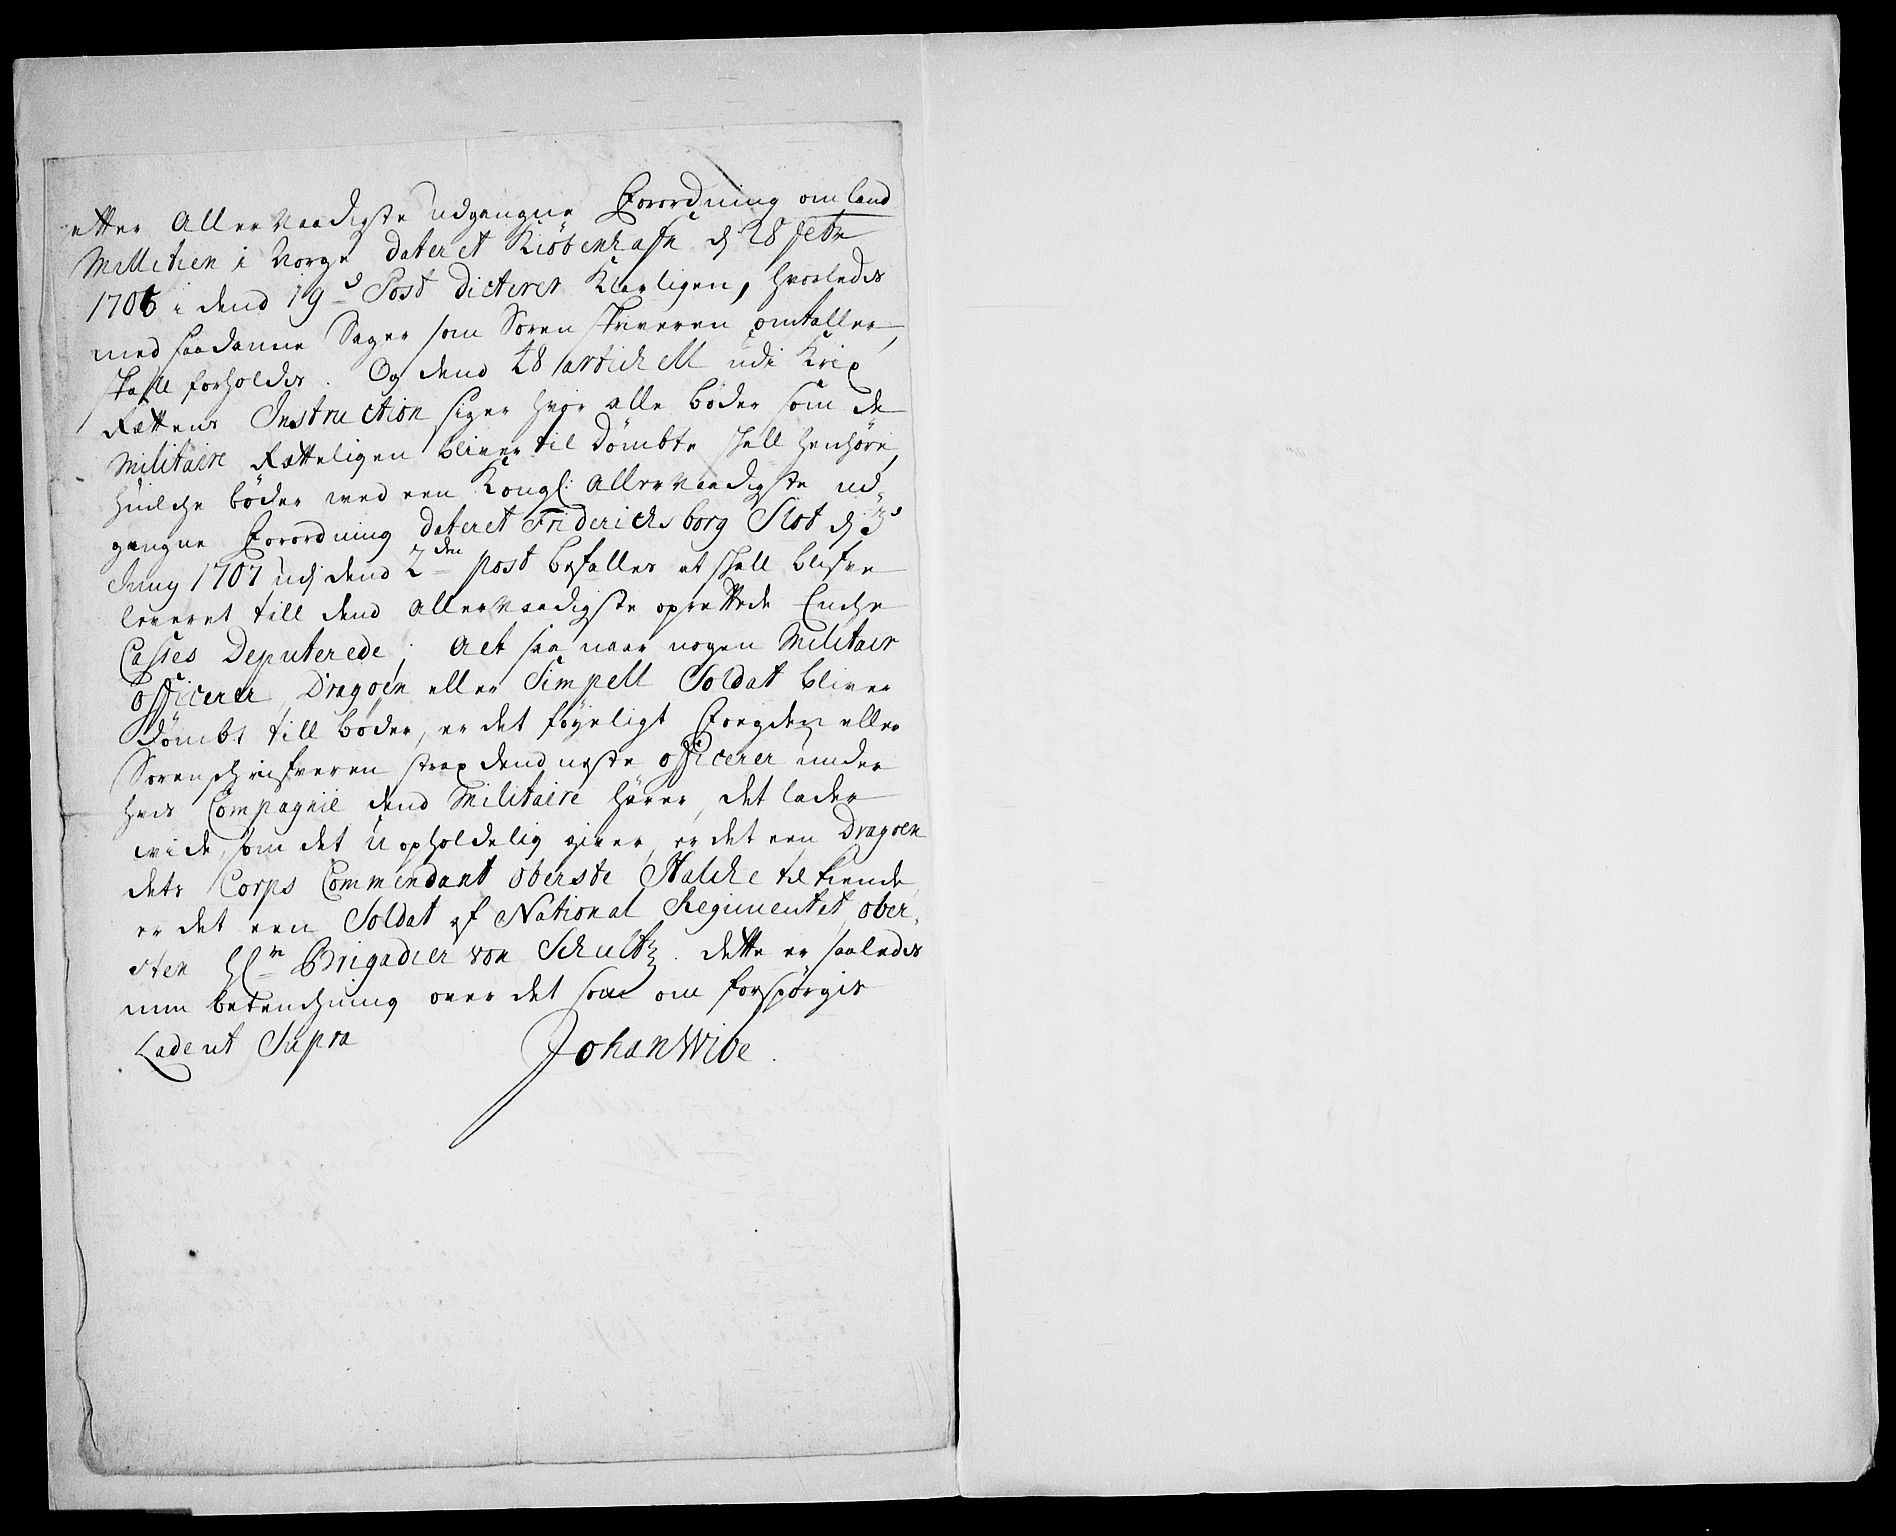 etter Allernaadigste udgangne Forordning om land
Militien i Norge dateret Kiöbenhafn d 28 febr
1705 i dend 19de Post dicterer Klarligen, hvorledis
med saadanne Sager som Sorenskriveren omtaller,
skall forholdes. Og dend 28 articell udi Krix
Rættens Instruction siger hvor alle bøder som de
Militaire Rætteligen bliver til dömbte skall henhöre,
huilche bøder med een Kongl: allernaadigste ud-
gangne Forordning dateret Friderichsborg Slot d 3
Juny 1707 udj dend 2den post befalles at skall blifve
leveret till dend allernaadigste oprettede Enche
Casses Deputerede; Alt saa naar nogen Militair
officerer, Dragoen eller Simpell Soldat bliver
dömbt till bøder, er det føyeligt Fogden eller
Sorenschrifveren strax dend neste officerer under
hvis Compagnie dend Militaire hører, det lader
vide, som det uopholdelig giver, er det een Dragoen
dets Corps Commendant oberste Stalche tilkiende,
er det een Soldat af National Regimentet, ober-
sten Hr Brigadier von Schultz. dette er saaledis
min betenchning over det som om forspörgis
Lade ut Supra
Johan Wibe.